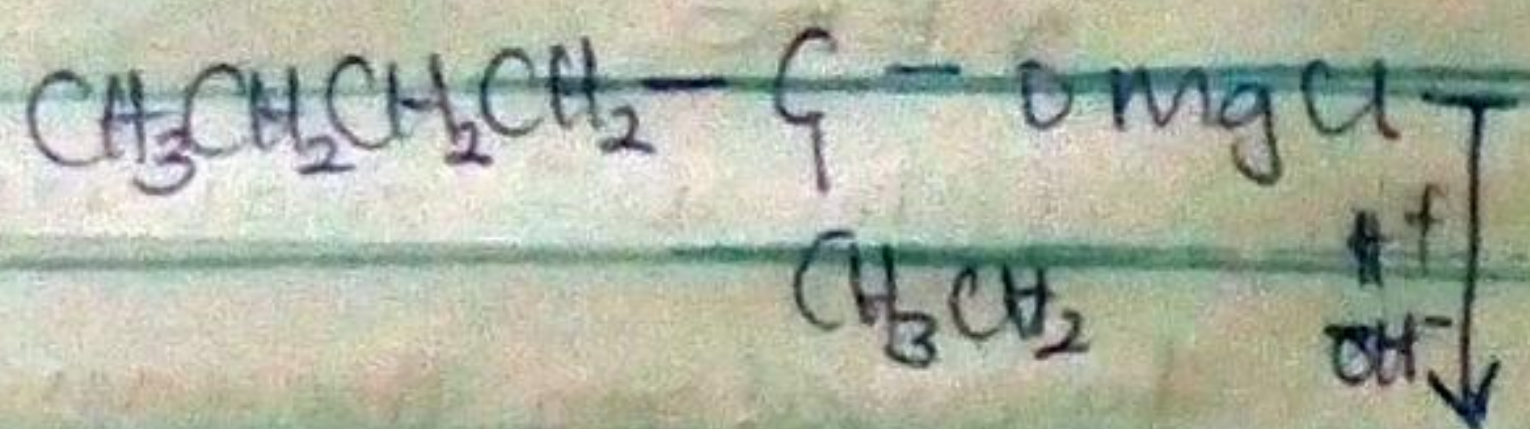 CH₃CH₂CH₂CH₂ — C — OMgCl
H⁺
CH₃CH₂
OH⁻